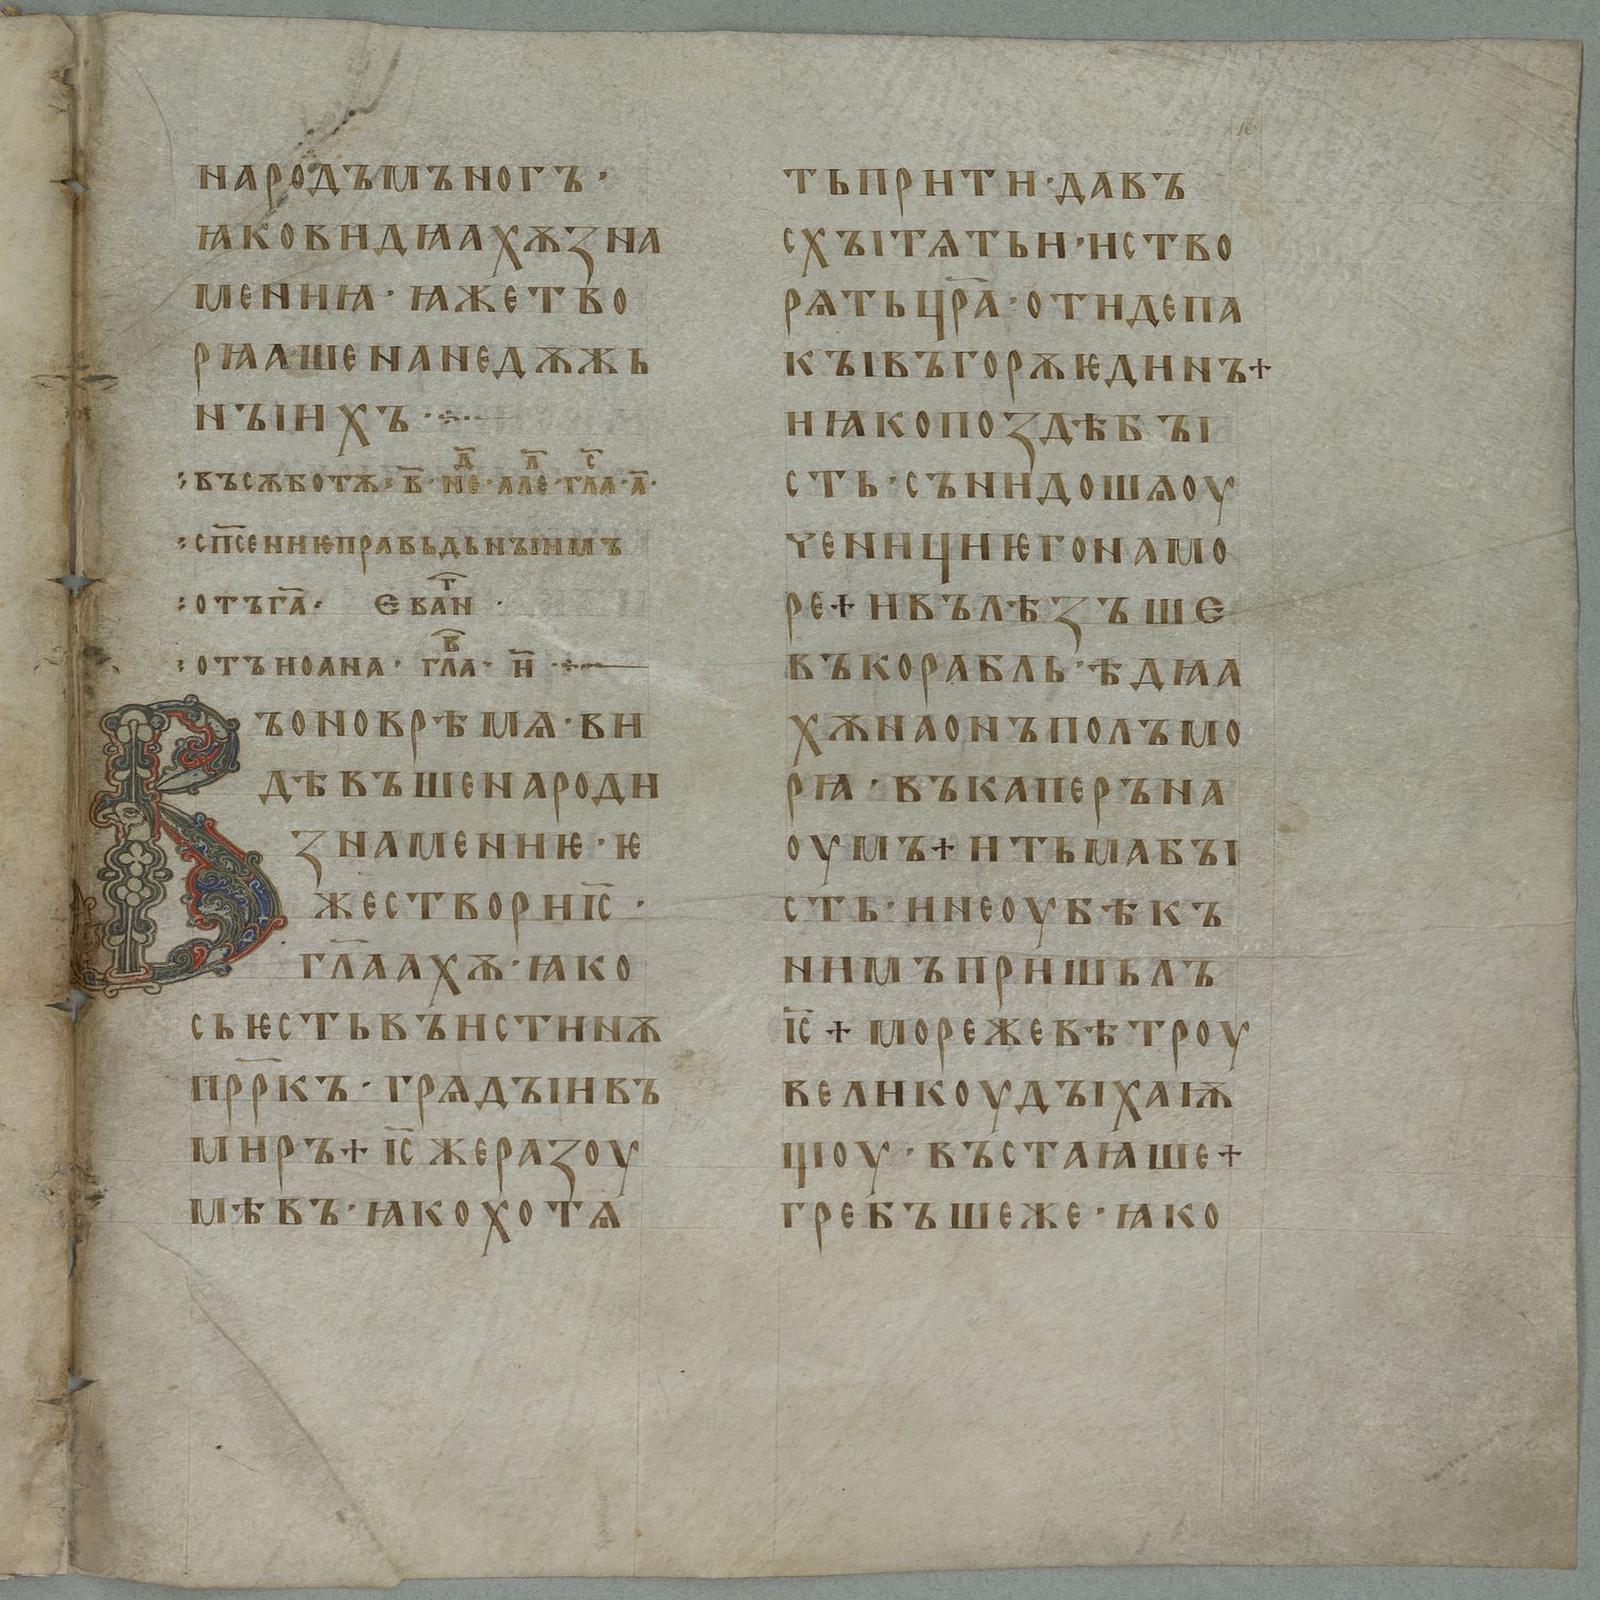 народъмъногъ·
ꙗковидꙗахѫзна
мениꙗ·ꙗжетво
рꙗашенанедѫжь
нꙑихъ·
въсѫботѫ·в҃·не҃·але·гла·а҃·
сп҃сениѥправьдьнꙑимъ
отъга҃· єван·
отъиоана· гла· и҃·
Въоноврѣмѧ·ви
дѣвъшенароди
знамениѥ·ѥ
жествориі҃с·
гл҃аахѫ·ꙗко
сьѥстьвъистинѫ
прр҃къ·грѧдꙑивъ
миръ+і҃сжеразоу
мѣвъ·ꙗкохотѧ
тьприти·давъ
схꙑтѧтьи·иство
рѧтьцр҃а·отидепа
кꙑвъгорѫѥдинъ+
ниꙗкопоздѣбꙑ
сть·сънидошѧоу
ченициѥгонамо
ре+ивълѣзъше
въкорабль·ѣдꙗа
хѫнаонъполъмо
рꙗ·въкаперъна
оумъ+итьмабꙑ
сть·инеоубѣкъ
нимъпришьлъ
і҃с+морежевѣтроу
великоудꙑхаѭ
щоу·въстаꙗше+
гребъшеже·ꙗко